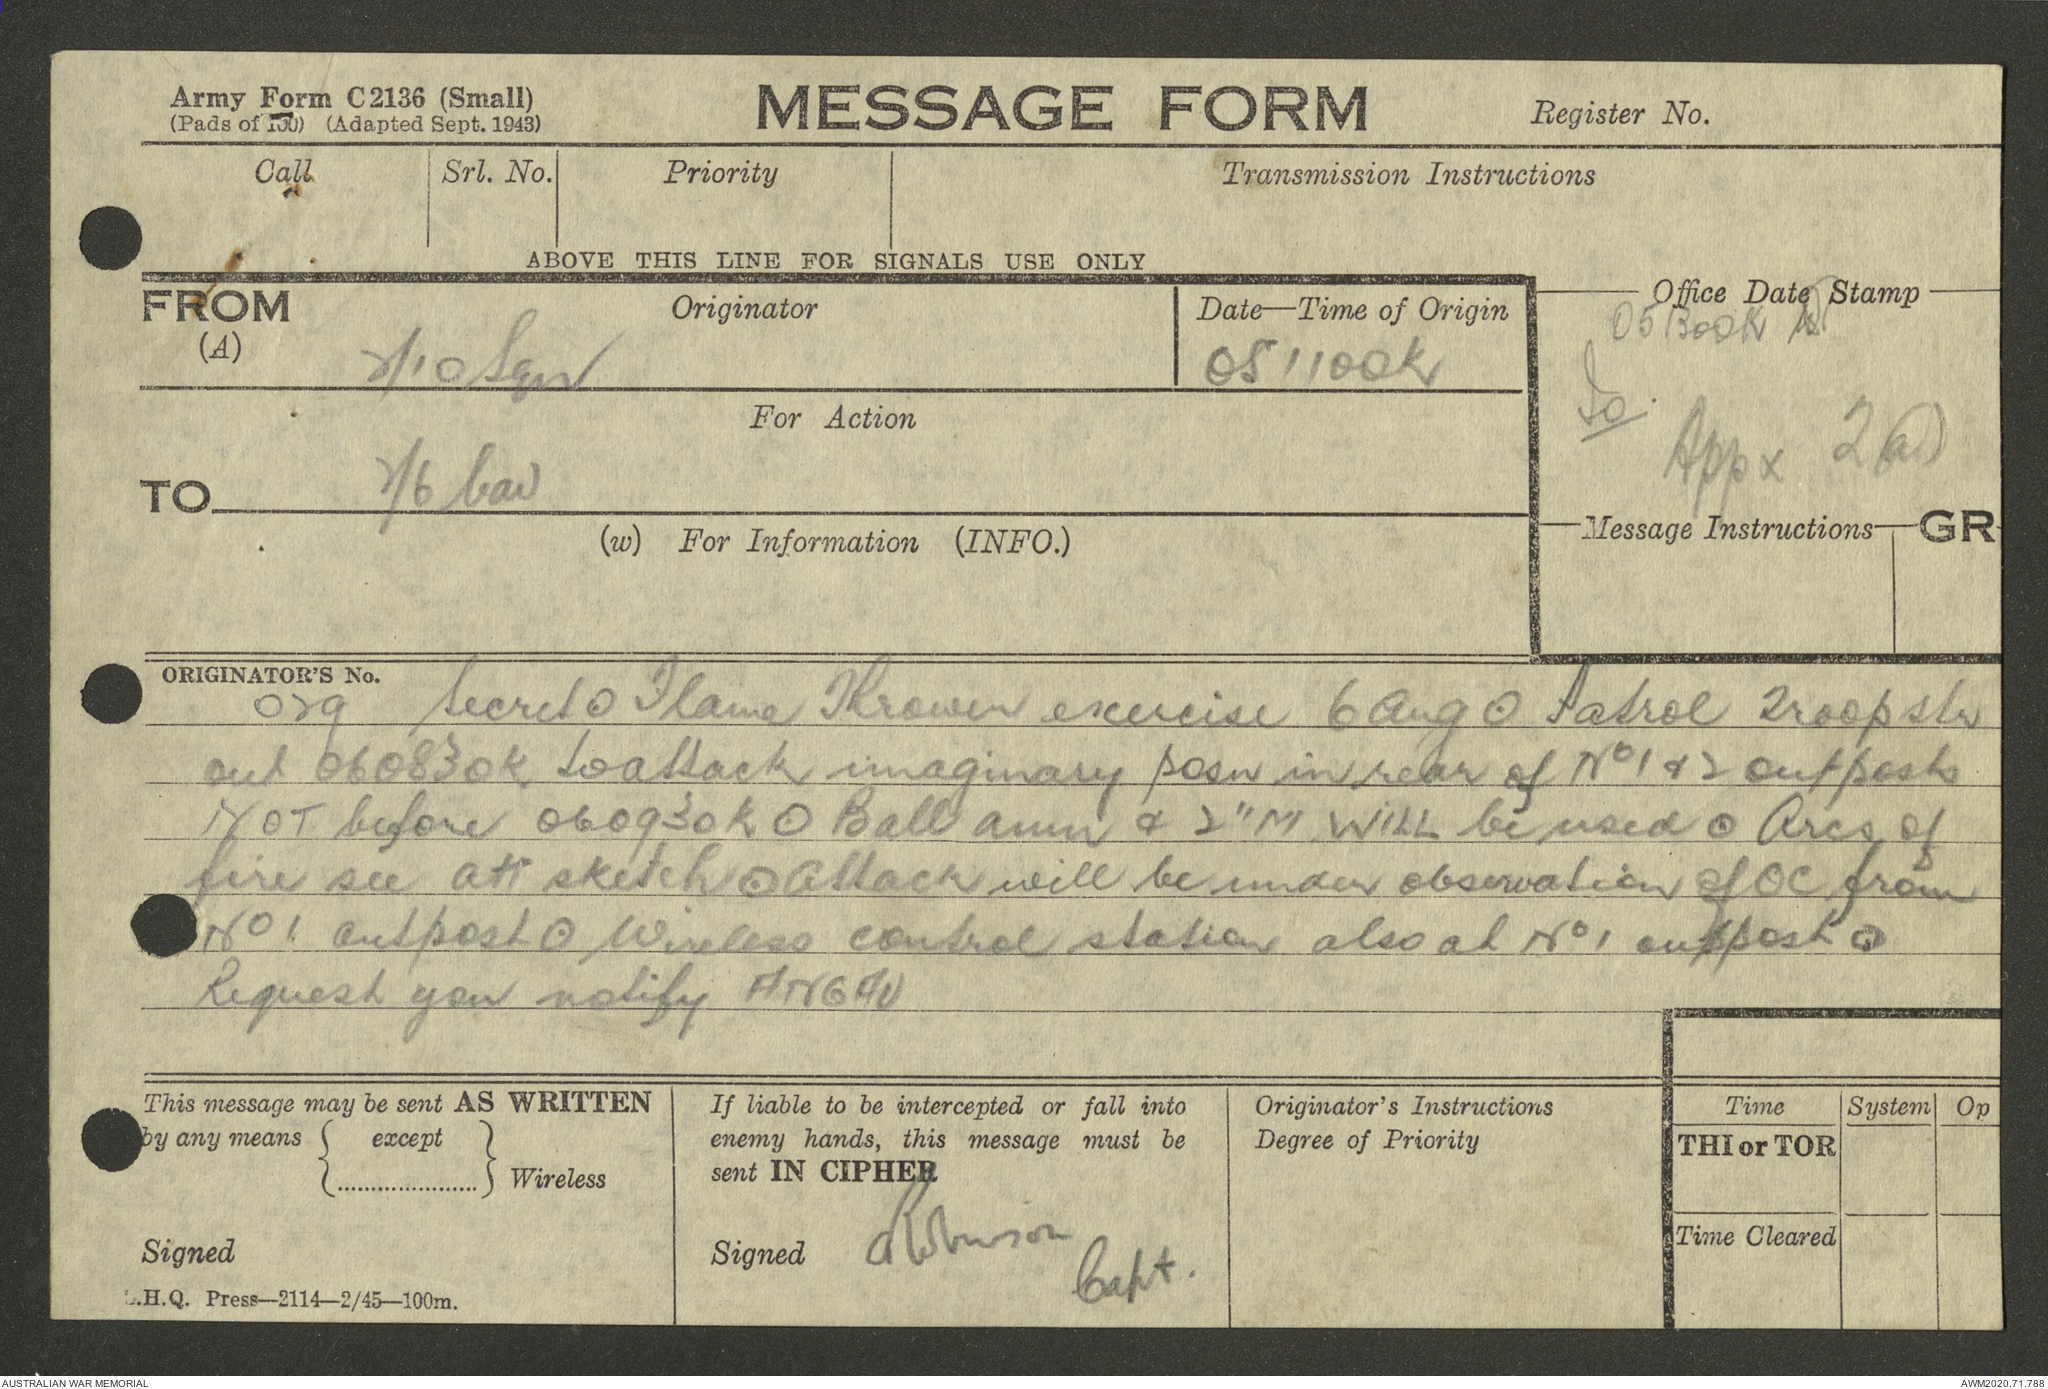 Army Form C2136 (Small)
(Pads of 100) (Adapted Sept. 1943)
MESSAGE FORM
Register No.
Call
Srl. No.
Priority
Transmission Instructions
ABOVE THIS LINE FOR SIGNALS USE ONLY
FROM
(A)
Originator
2/10 Sqn
Date—Time of Origin
051100K
Office Date Stamp
For Action
TO
2/6 Cav
Io
Appx 2(a)
(w) For Information (INFO.)
Message Instructions
GR
ORIGINATOR'S No.
029 Secret O Flame Thrower exercise 6 Aug O Patrol 2 Troop
out 060830K to attack imaginary posn in rear of No 1 & 2 outposts
NOT before 060930K O Ball amn & 2"M WILL be used O Arcs of
fire see att sketch O Attack will be under observation of OC from
No 1 outpost O Wireless control station also at No 1 outpost O
Request you notify ANGAU
This message may be sent AS WRITTEN
by any means { except
..................... } Wireless
Signed
L.H.Q. Press—2114—2/45—100m.
If liable to be intercepted or fall into
enemy hands, this message must be
sent IN CIPHER
Signed Robinson
Capt.
Originator's Instructions
Degree of Priority
Time
System
Op
THI or TOR
Time Cleared
AUSTRALIAN WAR MEMORIAL
AWM2020.71.788